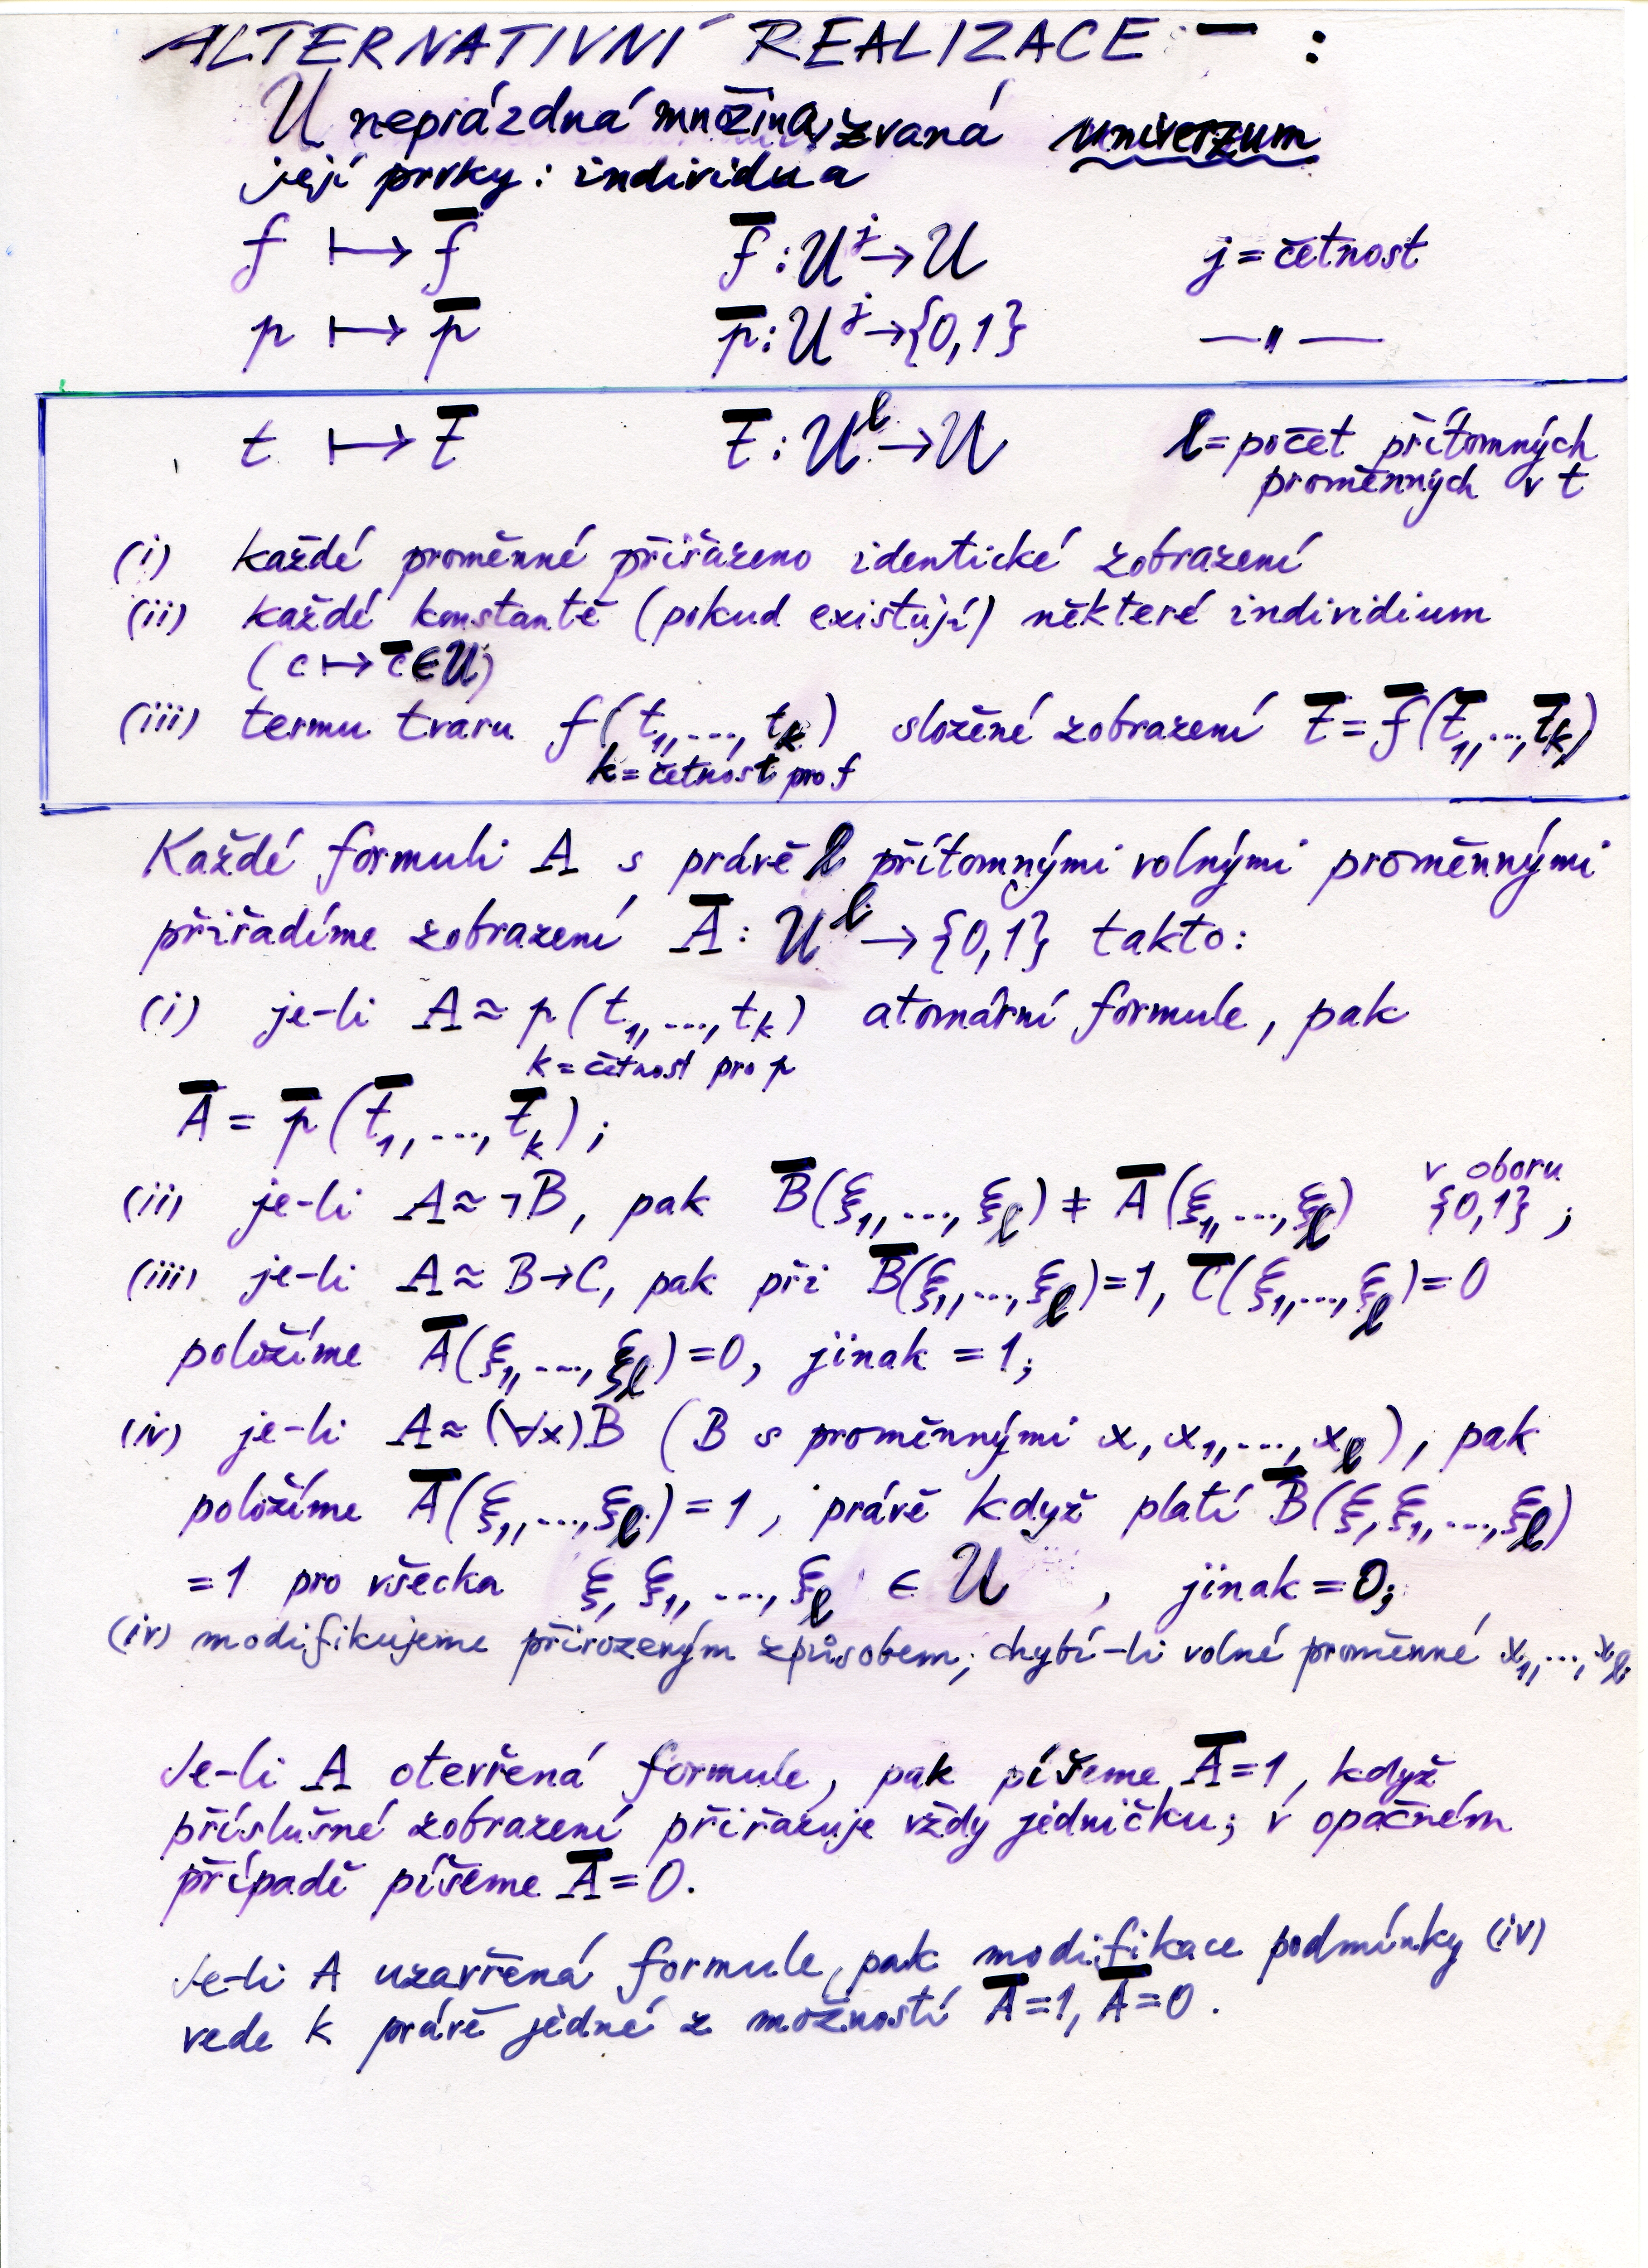 ALTERNATIVNÍ REALIZACE ¯ :
U neprázdná množina, zvaná univerzum
její prvky: individua
f ↦ f̄   f̄ : U^j → U   j = četnost
p ↦ p̄   p̄ : U^j → {0,1}   —„—
t ↦ t̄   t̄ : U^l → U   l = počet přítomných
proměnných v t
(i) každé proměnné přiřazeno identické zobrazení
(ii) každé konstantě (pokud existují) některé individium
(c ↦ c̄ ∈ U)
(iii) termu tvaru f(t₁,...,t_k) složené zobrazení t̄ = f̄(t̄₁,...,t̄_k)
k = četnost pro f
Každé formuli A s právě l přítomnými volnými proměnnými
přiřadíme zobrazení Ā : U^l → {0,1} takto:
(i) je-li A ≈ p(t₁,...,t_k) atomární formule, pak
k = četnost pro p
Ā = p̄(t̄₁,...,t̄_k);
(ii) je-li A ≈ ¬B, pak B̄(ξ₁,...,ξ_l) ≠ Ā(ξ₁,...,ξ_l) v oboru {0,1};
(iii) je-li A ≈ B→C, pak při B̄(ξ₁,...,ξ_l)=1, C̄(ξ₁,...,ξ_l)=0
položíme Ā(ξ₁,...,ξ_l)=0, jinak =1;
(iv) je-li A ≈ (∀x)B (B s proměnnými x, x₁,...,x_l), pak
položíme Ā(ξ₁,...,ξ_l)=1, právě když platí B̄(ξ,ξ₁,...,ξ_l)
=1 pro všecka ξ, ξ₁,...,ξ_l ∈ U , jinak =0;
(iv) modifikujeme přirozeným způsobem, chybí-li volné proměnné x₁,...,x_l.
Je-li A otevřená formule, pak píšeme Ā=1, když
příslušné zobrazení přiřazuje vždy jedničku; v opačném
případě píšeme Ā=0.
Je-li A uzavřená formule, pak modifikace podmínky (iv)
vede k právě jedné z možností Ā=1, Ā=0.